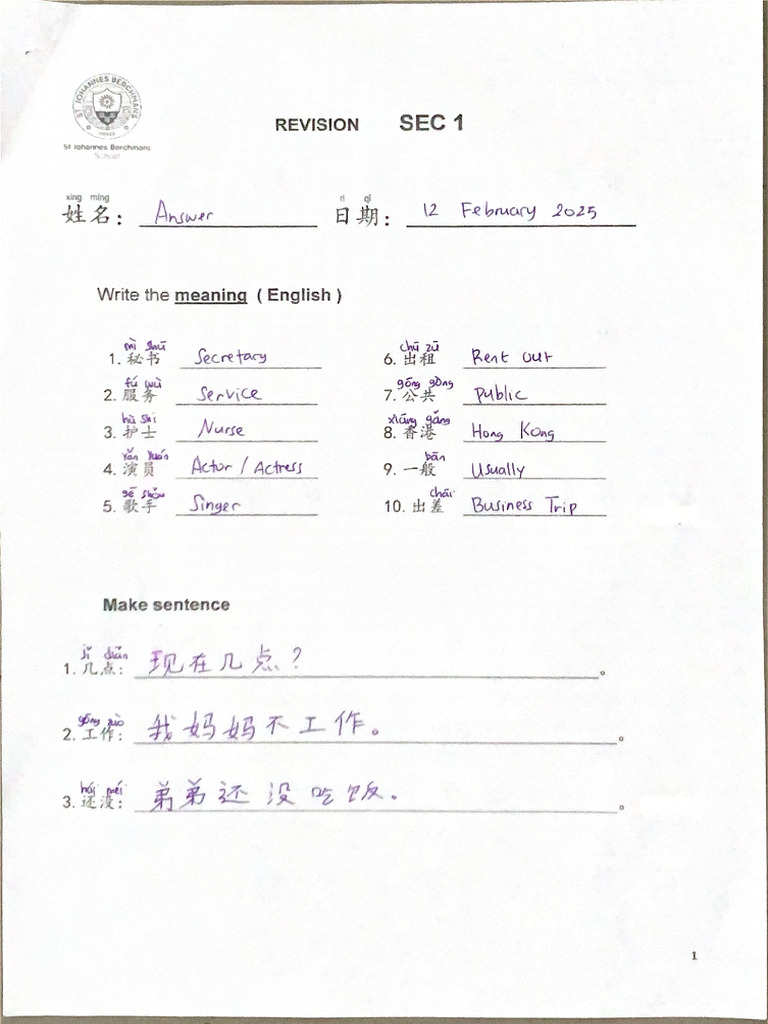 ST JOHANNES BERCHMANS
St Johannes Berchmans
School
REVISION SEC 1
xìng míng rì qī
姓名: Answer 日期: 12 February 2025
Write the meaning ( English )
mì shū chū zū
1. 秘书 Secretary 6. 出租 Rent out
fú wù gōng gòng
2. 服务 Service 7. 公共 Public
hù shì xiāng gǎng
3. 护士 Nurse 8. 香港 Hong Kong
yǎn yuán bān
4. 演员 Actor / Actress 9. 一般 Usually
gē shǒu chāi
5. 歌手 Singer 10. 出差 Business Trip
Make sentence
jǐ diǎn
1. 几点: 现在几点? 。
gōng zuò
2. 工作: 我妈妈不工作。 。
hái méi
3. 还没: 弟弟还没吃饭. 。
1